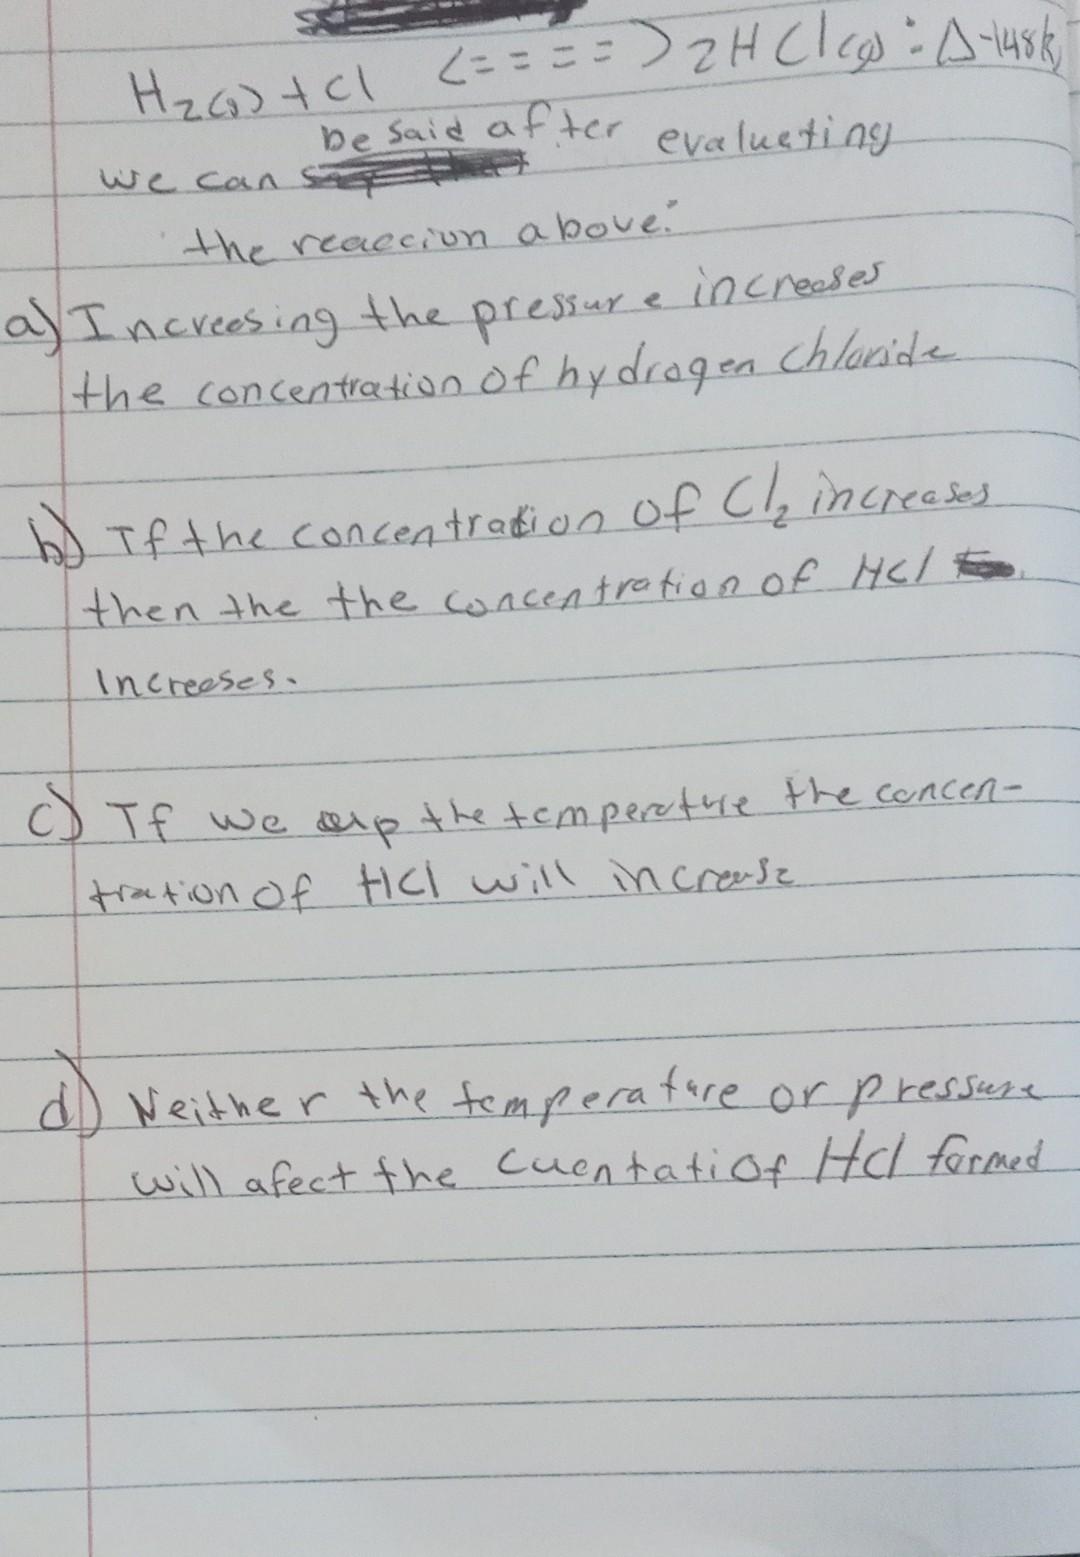 H2(g) + Cl <====> 2HCl(g) : Δ-148k
be said after evaluating
we can
the reaccion above:
a) Increesing the pressure increeses
the concentration of hydrogen chloride
b) If the concentration of Cl2 increases
then the the concentration of HCl
increeses.
c) If we up the temperature the concen-
tration of HCl will increase
d) Neither the temperature or pressure
will afect the cuentatiof HCl formed